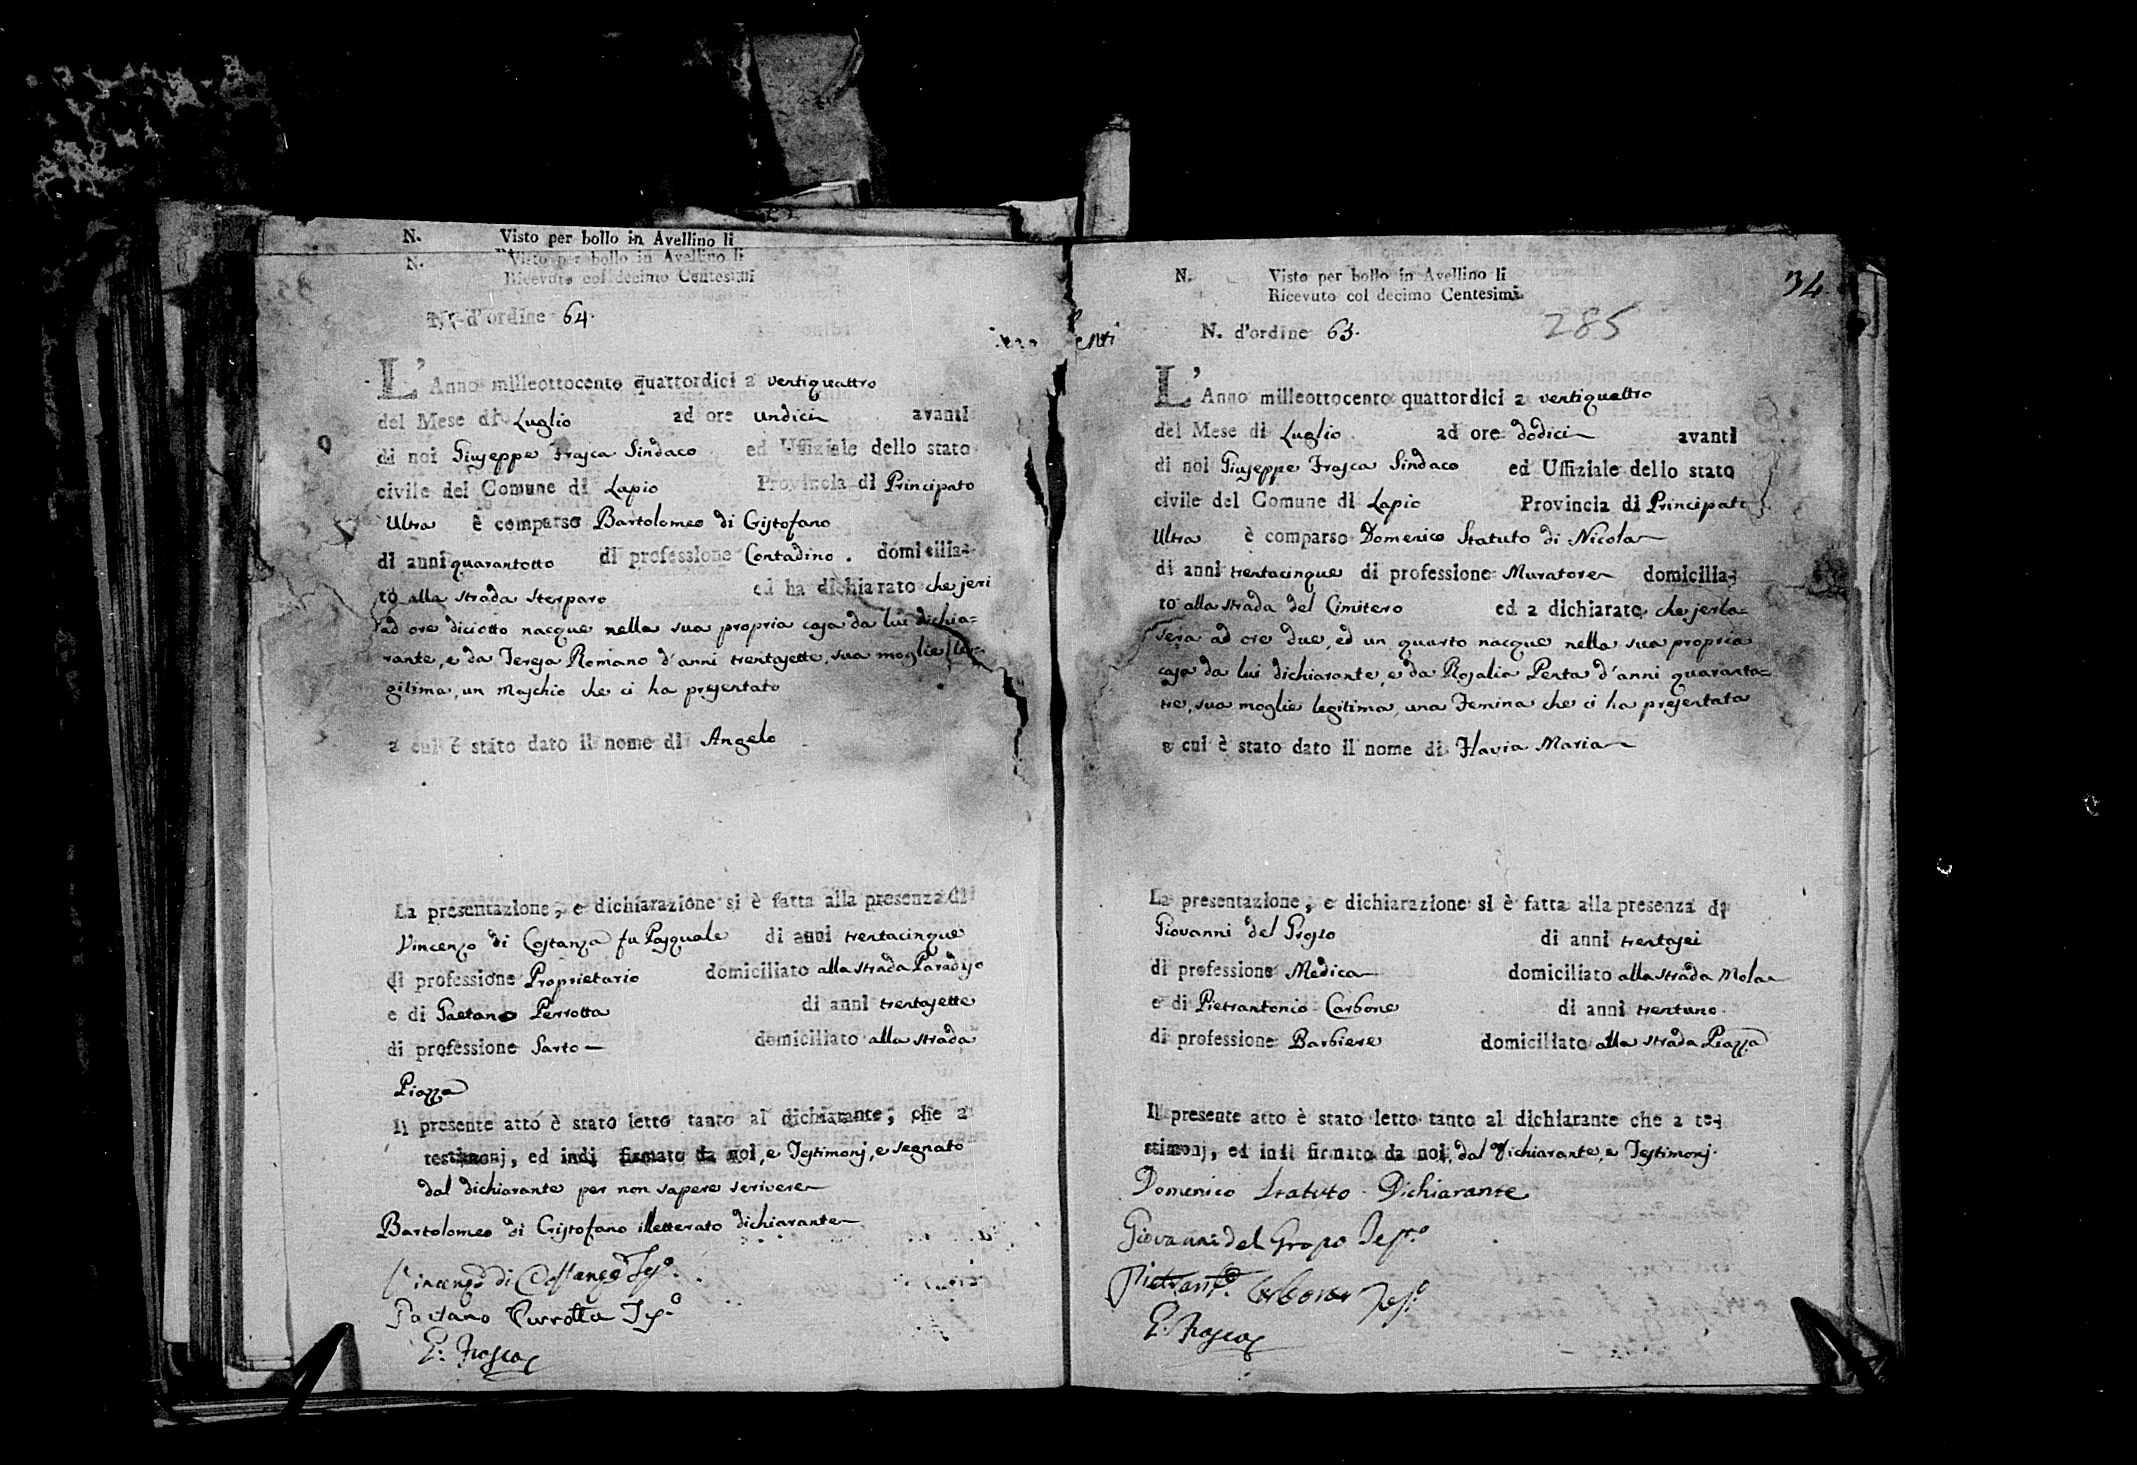 N. Visto per bollo in Avellino li
N. Visto per bollo in Avellino li
Ricevuto col decimo Centesimi
N. d'ordine 64.
L'Anno milleottocento quattordici a ventiquattro
del Mese di Luglio ad ore undici avanti
di noi Giuseppe Frasca Sindaco ed Uffiziale dello stato
civile del Comune di Lapio Provincia di Principato
Ultra è comparso Bartolomeo di Cristofano
di anni quarantotto di professione Contadino. domicilia-
to alla strada Sterparo ed ha dichiarato che jeri
ad ore diciotto nacque nella sua propria casa da lui dichia=
rante, e da Teresa Romano d'anni trentasette, sua moglie le=
gitima, un Maschio che ci ha presentato
a cui è stato dato il nome di Angelo
La presentazione, e dichiarazione si è fatta alla presenza di
Vincenzo di Costanza fu Pasquale di anni trentacinque
di professione Proprietario domiciliato alla strada Paradiso
e di Gaetano Perrotta di anni trentasette
di professione Sarto — domiciliato alla strada
Piazza
Il presente atto è stato letto tanto al dichiarante, che a
testimonj, ed indi firmato da noi, e Testimonj, e segnato
dal dichiarante per non sapere scrivere
Bartolomeo di Cristofano illetterato dichiarante
Vincenzo di Costanza Tes.º
Gaetano Perrotta Tes.º
G. Frasca
34
N. Visto per bollo in Avellino li
Ricevuto col decimo Centesimi
285
N. d'ordine 63.
L'Anno milleottocento quattordici a ventiquattro
del Mese di Luglio ad ore dodici avanti
di noi Giuseppe Frasca Sindaco ed Uffiziale dello stato
civile del Comune di Lapio Provincia di Principato
Ultra è comparso Domenico Statuto di Nicola
di anni trentacinque di professione Muratore domicilia-
to alla strada del Cimitero ed a dichiarato che jerla=
sera ad ore due, ed un quarto nacque nella sua propria
casa da lui dichiarante, e da Rosalia Penta d'anni quaranta=
tre, sua moglie legitima, una Femina che ci ha presentata
a cui è stato dato il nome di Flavia Maria
La presentazione, e dichiarazione si è fatta alla presenza di
Giovanni del Grosso di anni trentasei
di professione Medica domiciliato alla strada Mola
e di Pietrantonio Carbone di anni trentuno.
di professione Barbiere domiciliato alla strada Piazza
Il presente atto è stato letto tanto al dichiarante che a te-
stimonj, ed indi firmato da noi, dal Dichiarante, e Testimonj.
Domenico Statuto Dichiarante
Giovanni del Grosso Tes.º
Pietrant.º Carbone Tes.º
G. Frasca